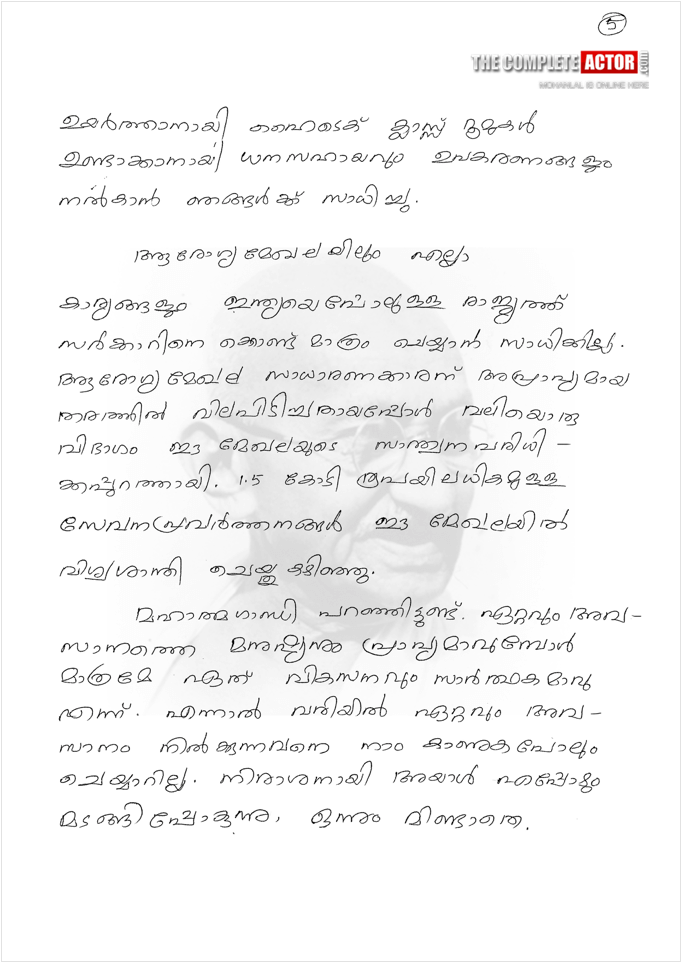 5
THE COMPLETE ACTOR .com
MOHANLAL IS ONLINE HERE
ഉയർത്താനായി ഹൈടെക് ക്ലാസ്സ് റൂമുകൾ
ഉണ്ടാക്കാനായി ധനസഹായവും ഉപകരണങ്ങളും
നൽകാൻ ഞങ്ങൾക്ക് സാധിച്ചു.
ആരോഗ്യമേഖലയിലും എല്ലാ
കാര്യങ്ങളും ഇന്ത്യയെപ്പോലുള്ള രാജ്യത്ത്
സർക്കാറിനെ കൊണ്ട് മാത്രം ചെയ്യാൻ സാധിക്കില്ല.
ആരോഗ്യമേഖല സാധാരണക്കാരന് അപ്രാപ്യമായ
തരത്തിൽ വിലപിടിച്ചതായപ്പോൾ വലിയൊരു
വിഭാഗം ഈ മേഖലയുടെ സാന്ത്വനപരിധി-
ക്കപ്പുറത്തായി. 1.5 കോടി രൂപയിലധികമുള്ള
സേവനപ്രവർത്തനങ്ങൾ ഈ മേഖലയിൽ
വിശ്വശാന്തി ചെയ്തു കഴിഞ്ഞു.
മഹാത്മഗാന്ധി പറഞ്ഞിട്ടുണ്ട്. ഏറ്റവും അവ-
സാനത്തെ മനുഷ്യനും പ്രാപ്യമാവുമ്പോൾ
മാത്രമേ ഏത് വികസനവും സാർത്ഥകമാവൂ
എന്ന്. എന്നാൽ വരിയിൽ ഏറ്റവും അവ-
സാനം നിൽക്കുന്നവനെ നാം കാണുകപോലും
ചെയ്യാറില്ല. നിരാശനായി അയാൾ എപ്പോഴും
മടങ്ങിപ്പോകുന്നു, ഒന്നും മിണ്ടാതെ.